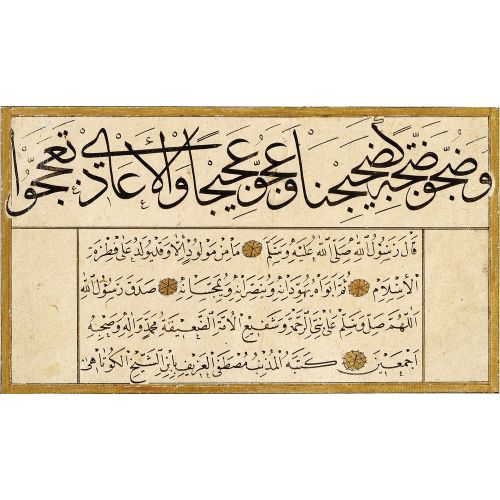 وضجوا ضجة كضجيجنا وعجوا عجيجا والأعادي تعججوا
قال رسول الله صلى الله عليه وسلم ما من مولود إلا وقد يولد على فطرة
الإسلام ثم ابواه يهودانه وينصرانه ويمجسانه صدق رسول الله
اللهم صل وسلم على نبي الرحمة وشفيع الأمة الضعيفة محمد واله وصحبه
اجمعين كتبه المذنب مصطفى العريف بابن الشيخ الكوتاهي